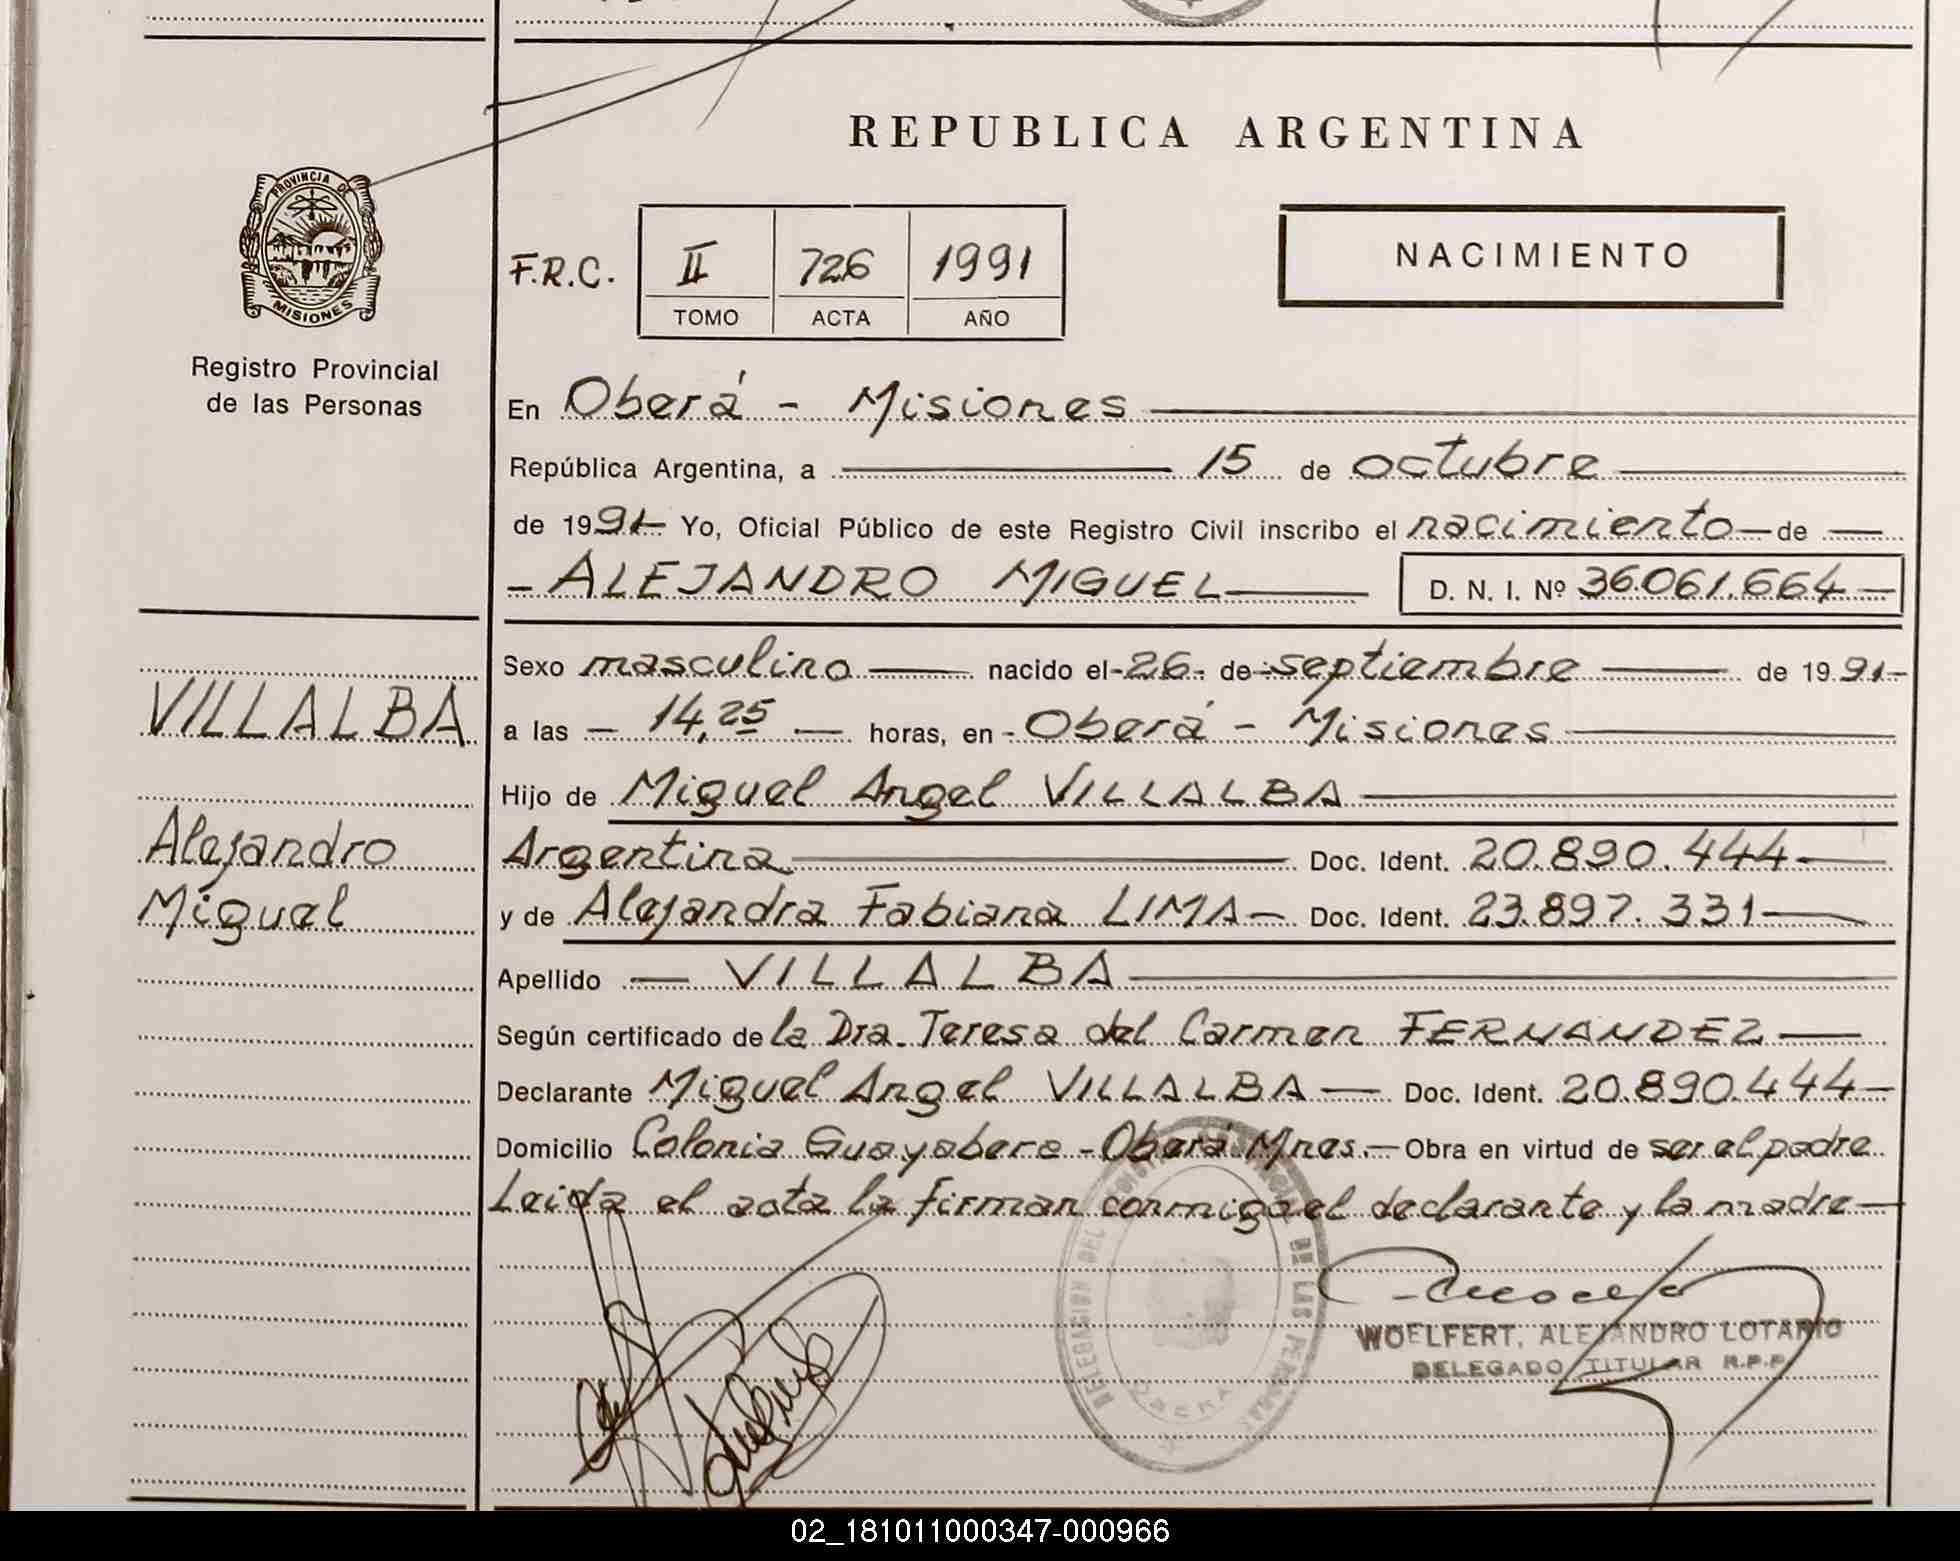 REPUBLICA ARGENTINA
PROVINCIA DE
MISIONES
Registro Provincial
de las Personas
F.R.C. II 726 1991
TOMO ACTA AÑO
NACIMIENTO
En Oberá - Misiones
República Argentina, a 15 de octubre
de 1991 Yo, Oficial Público de este Registro Civil inscribo el nacimiento de
- ALEJANDRO MIGUEL D. N. I. Nº 36.061.664
VILLALBA
Alejandro
Miguel
Sexo masculino nacido el 26 de septiembre de 1991
a las 14,25 horas, en Oberá - Misiones
Hijo de Miguel Angel VILLALBA
Argentina Doc. Ident. 20.890.444
y de Alejandra Fabiana LIMA Doc. Ident. 23.897.331
Apellido VILLALBA
Según certificado de la Dra. Teresa del Carmen FERNANDEZ
Declarante Miguel Angel VILLALBA Doc. Ident. 20.890.444
Domicilio Colonia Guayabera - Oberá Mnes. Obra en virtud de ser el padre
Leida el acta la firman conmigo el declarante y la madre
WOELFERT, ALEJANDRO LOTARIO
DELEGADO TITULAR R.P.P.
DELEGACION DEL DE LAS PERSONAS
OBERA
02_181011000347-000966